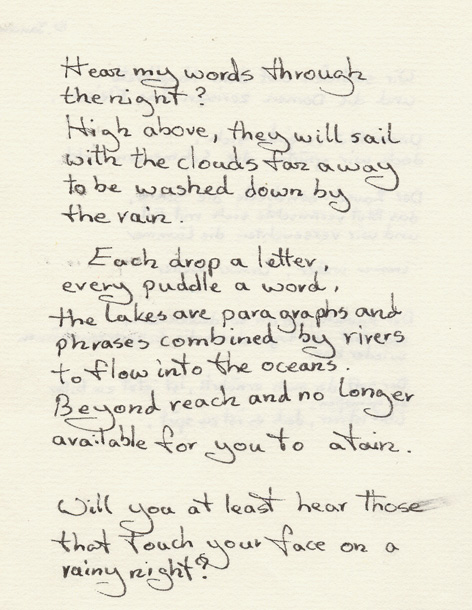 Hear my words through
the night?
High above, they will sail
with the clouds far away
to be washed down by
the rain.
Each drop a letter,
every puddle a word,
the lakes are paragraphs and
phrases combined by rivers
to flow into the oceans.
Beyond reach and no longer
available for you to atain.
Will you at least hear those
that touch your face on a
rainy night?